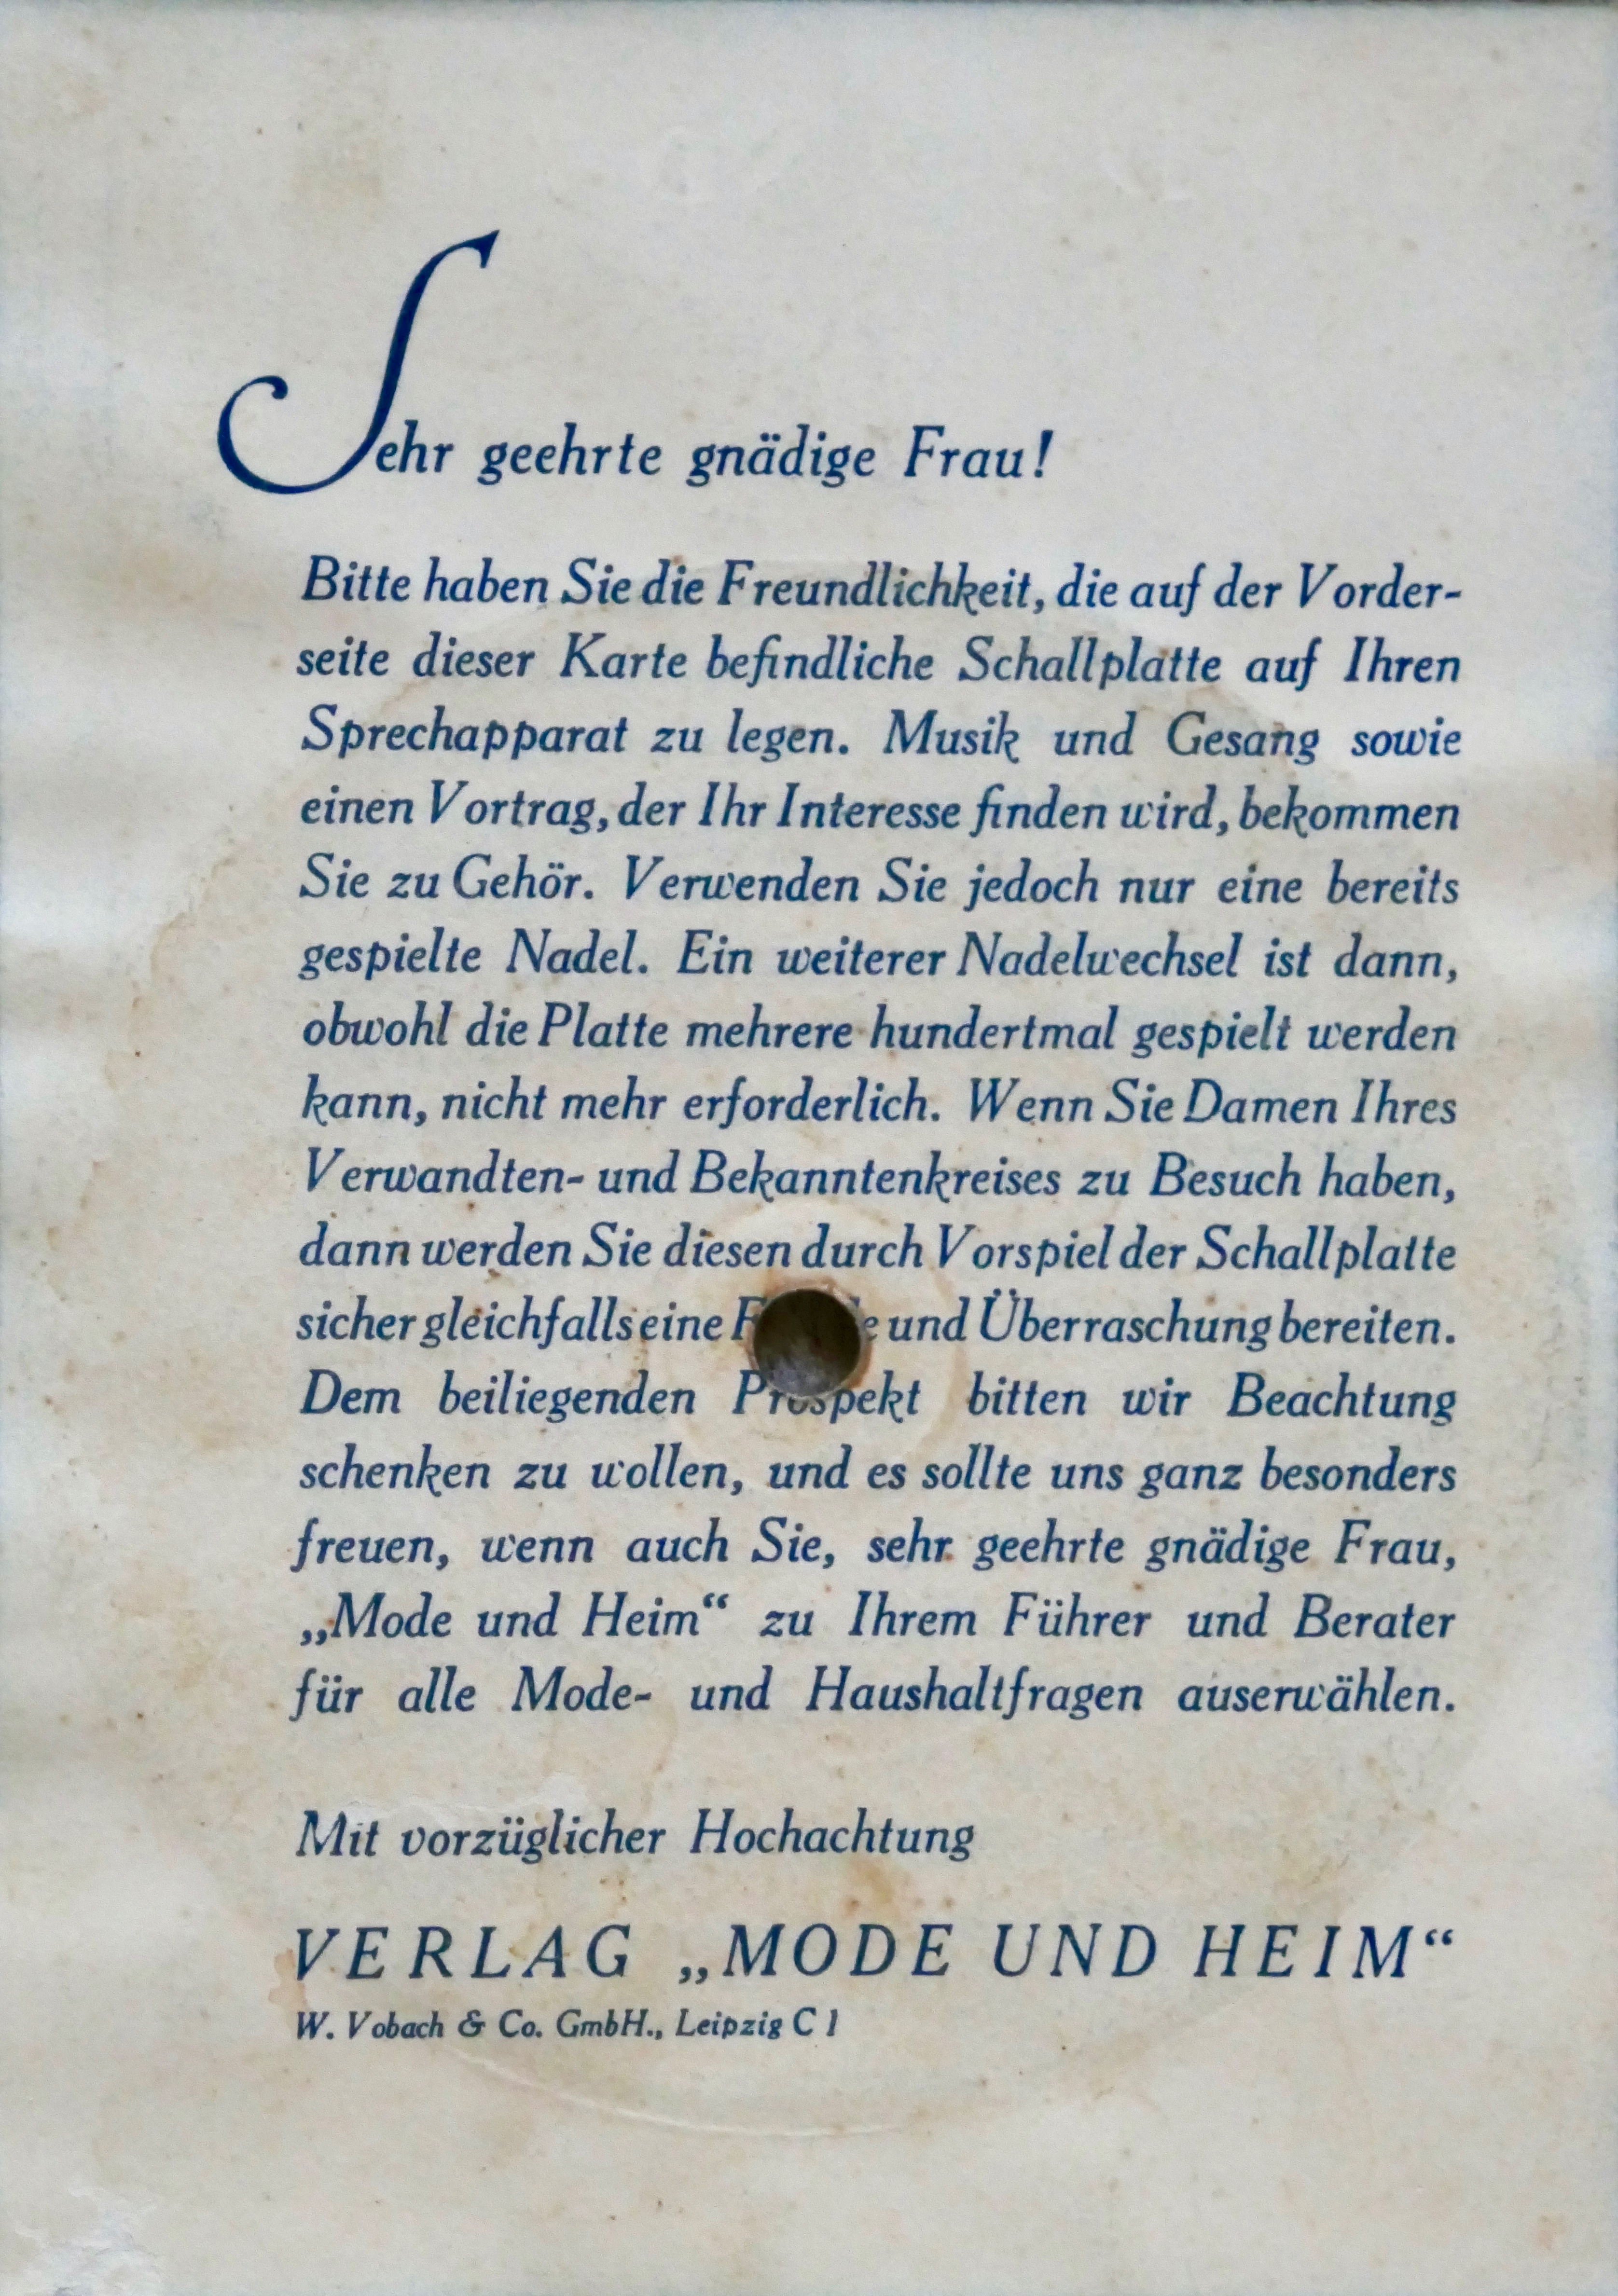 Sehr geehrte gnädige Frau!
Bitte haben Sie die Freundlichkeit, die auf der Vorder-
seite dieser Karte befindliche Schallplatte auf Ihren
Sprechapparat zu legen. Musik und Gesang sowie
einen Vortrag, der Ihr Interesse finden wird, bekommen
Sie zu Gehör. Verwenden Sie jedoch nur eine bereits
gespielte Nadel. Ein weiterer Nadelwechsel ist dann,
obwohl die Platte mehrere hundertmal gespielt werden
kann, nicht mehr erforderlich. Wenn Sie Damen Ihres
Verwandten- und Bekanntenkreises zu Besuch haben,
dann werden Sie diesen durch Vorspiel der Schallplatte
sicher gleichfalls eine und Überraschung bereiten.
Dem beiliegenden Prospekt bitten wir Beachtung
schenken zu wollen, und es sollte uns ganz besonders
freuen, wenn auch Sie, sehr geehrte gnädige Frau,
„Mode und Heim“ zu Ihrem Führer und Berater
für alle Mode- und Haushaltfragen auserwählen.
Mit vorzüglicher Hochachtung
VERLAG „MODE UND HEIM“
W. Vobach & Co. GmbH., Leipzig C 1